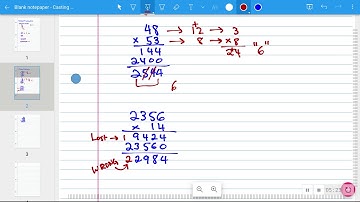 Blank notepaper - Casting ...
48 → 12 → 3
× 53 → 8 → ×8
144 24 "6"
2400
2544
6
2356
× 14
Lost → 1 9424
23560
WRONG → 22984
1
2
3
05:23